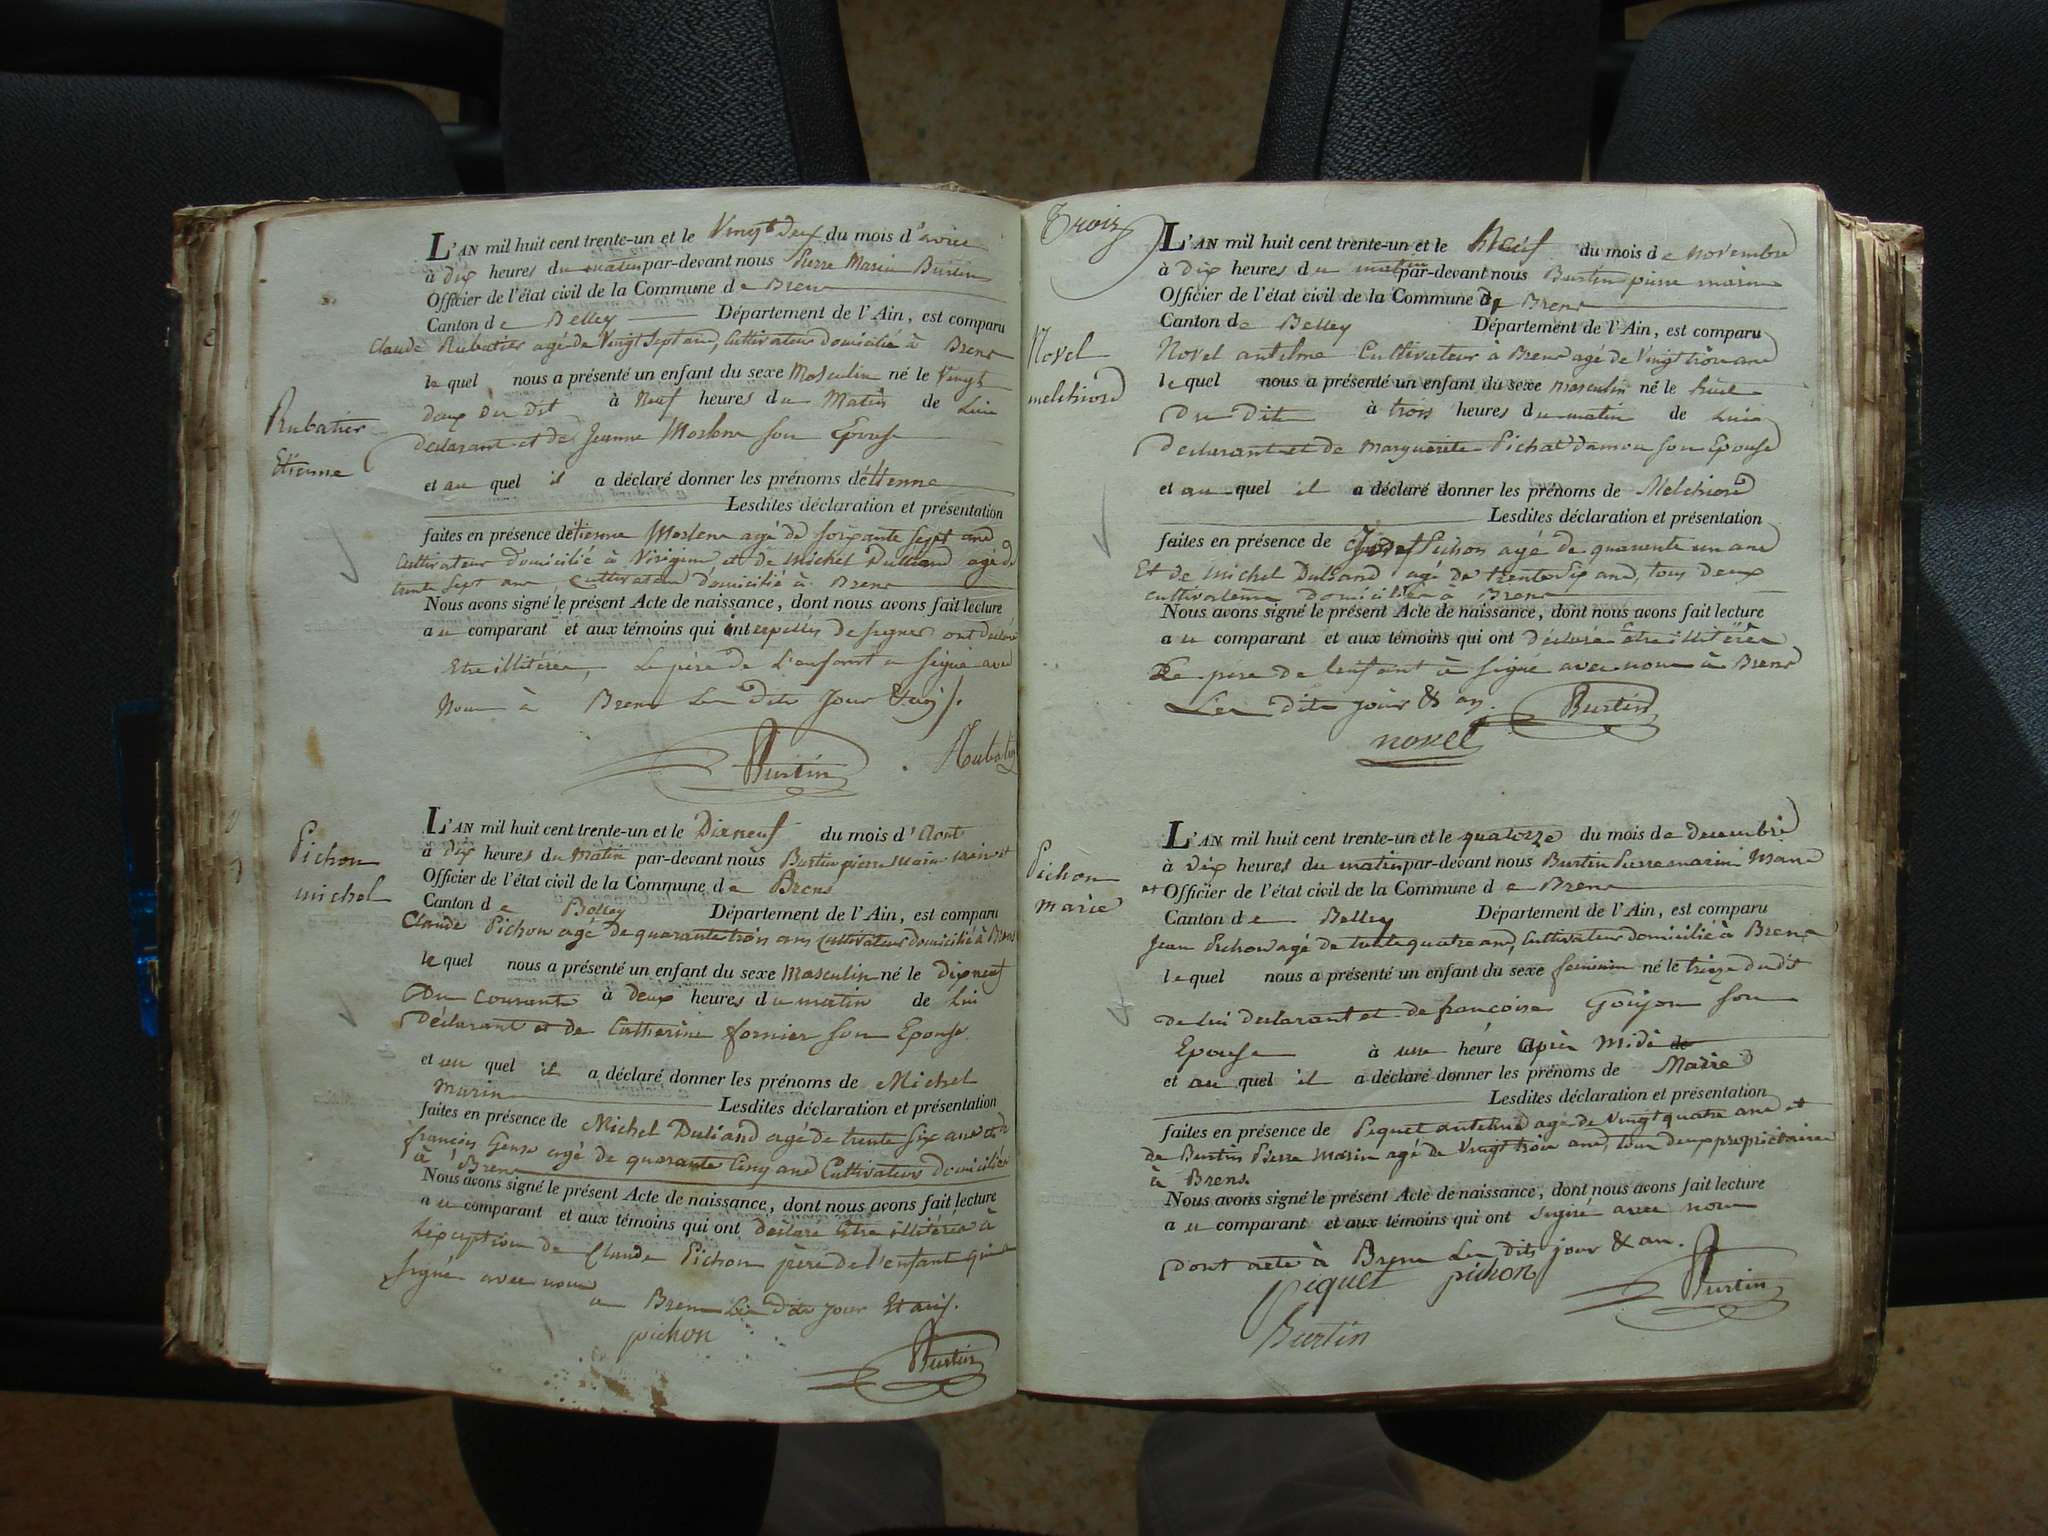 L'AN mil huit cent trente-un et le Vingt deux du mois d'avril
à dix heures du matin par-devant nous Pierre Marin Burtin
Officier de l'état civil de la Commune de Brens
Canton de Belley Département de l'Ain, est comparu
Claude Rubatier agé de Vingt Sept ans, Cultivateur domicilié à Brens
le quel nous a présenté un enfant du sexe Masculin né le Vingt
deux du dit à Neuf heures du Matin de Lui
declarant et de Jeanne son Epouse
Rubatier
Etienne
et au quel il a déclaré donner les prénoms d'étienne
Lesdites déclaration et présentation
faites en présence détienne agé de soixante sept ans
Cultivateur domicilié à et de Michel Duliand agé de
trente Sept ans, Cultivateur domicilié à Brens
Nous avons signé le présent Acte de naissance, dont nous avons fait lecture
au comparant et aux témoins qui interpellés de signer ont declaré
Etre illitérés, Le père de L'enfant a signé avec
Nous à Brens Les dits jour & an.
Burtin Rubatier
Pichon
michel
L'AN mil huit cent trente-un et le Dixneuf du mois d'Aout
à dix heures du Matin par-devant nous Burtin pierre marin maire et
Officier de l'état civil de la Commune de Brens
Canton de Belley Département de l'Ain, est comparu
Claude Pichon agé de quarante trois ans Cultivateur domicilié à Brens
le quel nous a présenté un enfant du sexe Masculin né le dix neuf
Du Courant à deux heures du matin de Lui
Déclarant et de Catherine fornier son Epouse
et au quel il a déclaré donner les prénoms de Michel
Marin Lesdites déclaration et présentation
faites en présence de Michel Duliand agé de trente six ans et de
françois agé de quarante Cinq ans Cultivateurs domiciliés
à Brens
Nous avons signé le présent Acte de naissance, dont nous avons fait lecture
au comparant et aux témoins qui ont déclaré Etre illitérés à
L'exception de Claude Pichon père de l'enfant qui a
signé avec nous
a Brens Les dits jour Et an.
pichon
Burtin
Trois
L'AN mil huit cent trente-un et le Neuf du mois de novembre
à dix heures du matin par-devant nous Burtin pierre marin
Officier de l'état civil de la Commune de Brens
Canton de Belley Département de l'Ain, est comparu
Novel
melchiord
Novel antelme Cultivateur à Brens agé de Vingt trois ans
le quel nous a présenté un enfant du sexe masculin né le huit
Du Dit à trois heures du matin de Lui
Declarant et de Marguerite Pichat damon son Epouse
et au quel il a déclaré donner les prénoms de Melchiord
Lesdites déclaration et présentation
faites en présence de Josef Pichon agé de quarente un ans
Et de Michel Duliand agé de trente six ans, tous deux
cultivateurs domiciliés à Brens
Nous avons signé le présent Acte de naissance, dont nous avons fait lecture
au comparant et aux témoins qui ont déclaré Etre illitérés
Le père de lenfant à signé avec nous à Brens
Les dits jour & an. Burtin
novel
Pichon
marie
L'AN mil huit cent trente-un et le quatorze du mois de decembre
à dix heures du matin par-devant nous Burtin Pierre marin Maire
et Officier de l'état civil de la Commune de Brens
Canton de Belley Département de l'Ain, est comparu
Jean Pichon agé de trente quatre ans, Cultivateur domicilié à Brens
le quel nous a présenté un enfant du sexe feminin né le treize du dit
de lui declarant et de françoise Goujon son
Epouse à une heure après Midi de
et au quel il a déclaré donner les prénoms de Marie
Lesdites déclaration et présentation
faites en présence de Pequet antelme agé de Vingt quatre ans et
de Burtin Pierre Marin agé de Vingt trois ans, tous deux propriétaires
à Brens.
Nous avons signé le présent Acte de naissance, dont nous avons fait lecture
au comparant et aux témoins qui ont signé avec nous
Dont acte à Brens Les dits jour & an.
piquet pichon Burtin
Burtin